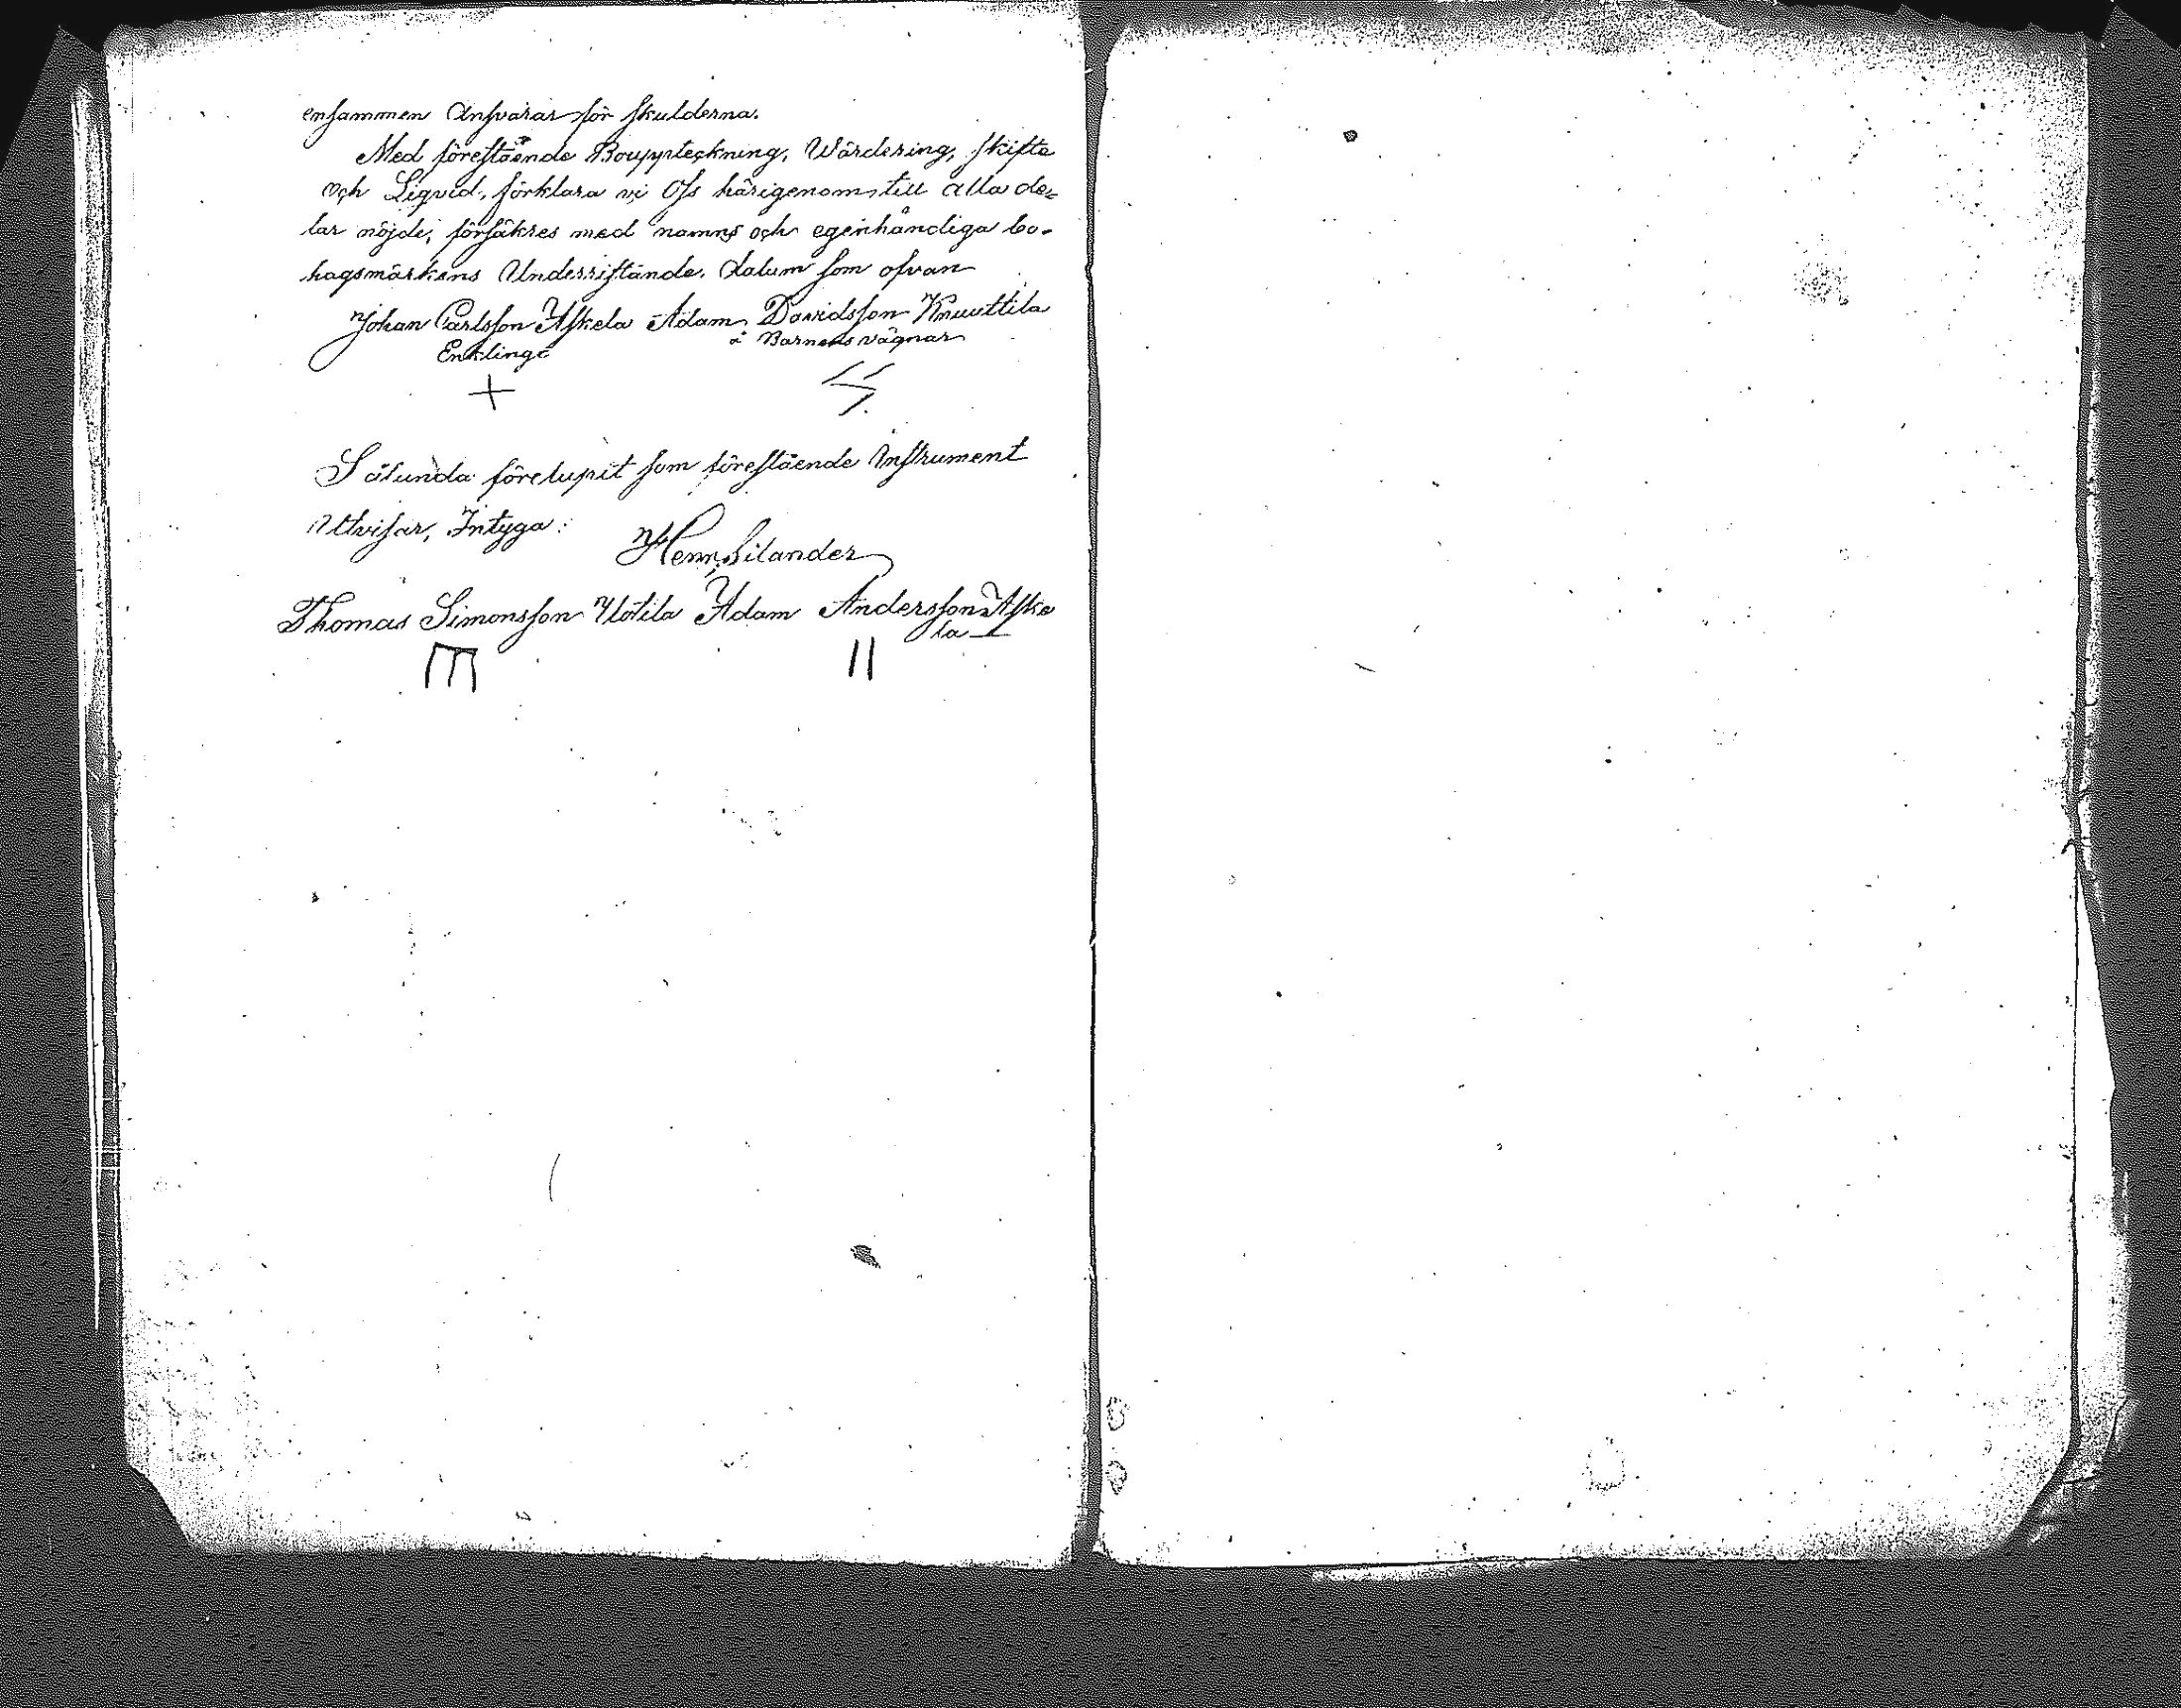 ensammen Ansvarar för skulderna.
Med föreståënde Bouppteckning, Wärdering, skifte
och Liqvid, förklara vi Oss härigenom till alla de=
lar nöjde, försäkres med namns och egenhändiga bo-
hagsmärkens Underristände. Datum som ofvan
Johan Carlsson Askela Adam Davidsson Knuuttila
Enklinge å Barnens vägnar
Sålunda förelupit som föreståënde Instrument
Utvisar, Intyga:
Henr. Silander
Thomas Simonsson Uotila Adam Andersson Aske
la